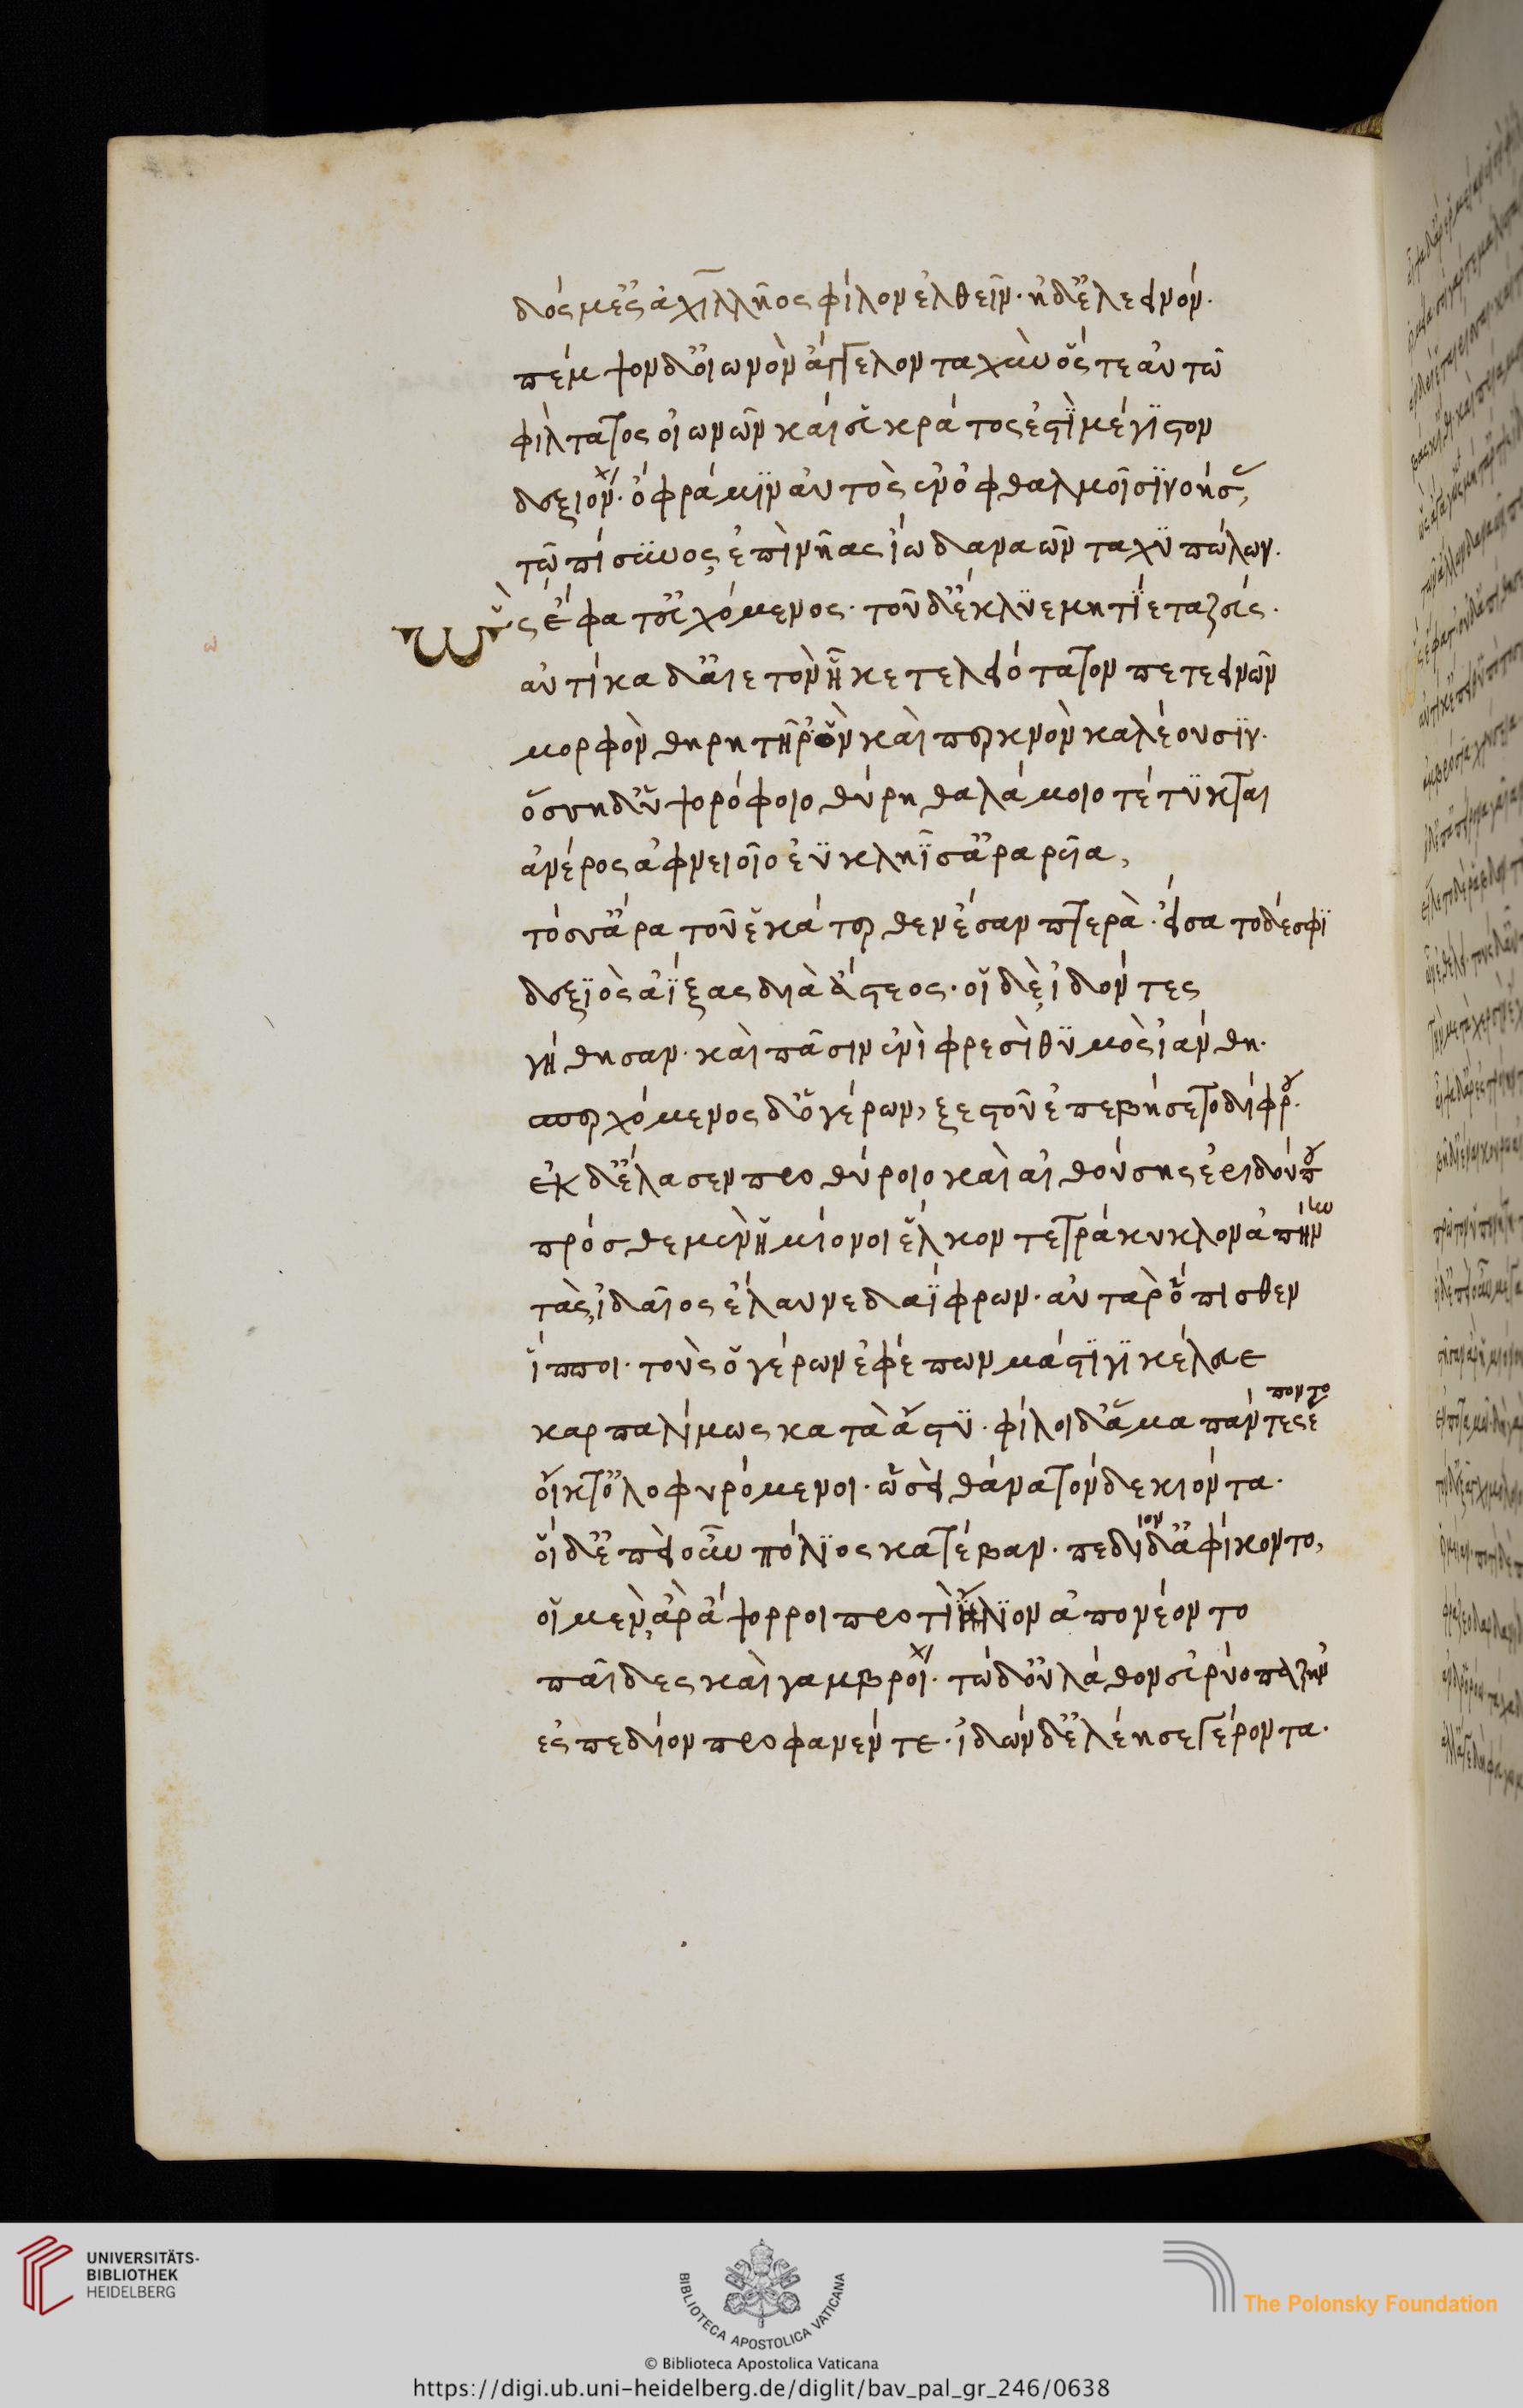 δός μ' ἐς ἀχιλλῆος φίλον ἐλθεῖν· ἠδ' ἐλεεινόν·
πέμψον δ' οἰωνὸν ἄγγελον ταχὺν ὅς τε αὐτῶ
φίλτατος οἰωνῶν καί εὑ κράτος ἐστὶ μέγιστον
δεξιόν· ὄφρά μιν αὐτὸς ἐν ὀφθαλμοῖσι νοήσας
τῶ πίσυνος ἐπὶ νῆας ἴω δαναῶν ταχυπώλων.
Ὣς ἔφατ' εὐχόμενος· τοῦ δ' ἔκλυε μητίετα ζεύς.
αὐτίκα δ' αἰετὸν ἧκε τελειότατον πετεεινῶν
μορφὸν θηρητῆρ' ὃν καὶ περκνὸν καλέουσιν·
ὅσση δ' ὑψορόφοιο θύρη θαλάμοιο τέτυκται
ἀνέρος ἀφνειοῖο ἐϋκληῒς ἀραρυῖα,
τόσσ' ἄρα τοῦ ἑκάτερθεν ἔσαν πτερὰ· εἴσατο δέ σφι
δεξιὸς ἀΐξας διὰ ἄστεος· οἱ δὲ ἰδόντες
γήθησαν· καὶ πᾶσιν ἐνὶ φρεσὶ θυμὸς ἰάνθη·
σπερχόμενος δ' ὁ γέρων, ξεστοῦ ἐπεβήσετο δίφρου·
ἐκ δ' ἔλασεν προθύροιο καὶ αἰθούσης ἐριδούπου
πρόσθε μὲν ἡμίονοι ἕλκον τετράκυκλον ἀπήνην
τὰς ἰδαῖος ἔλαυνε δαΐφρων· αὐτὰρ ὄπισθεν
ἵπποι· τοὺς ὁ γέρων ἐφέπων μάστιγι κέλευε
καρπαλίμως κατὰ ἄστυ· φίλοι δ' ἅμα πάντες ἕποντο
οἴκτ' ὀλοφυρόμενοι· ὡσεὶ θάνατόνδε κιόντα·
οἱ δ' ἐπεὶ οὖν πόλιος κατέβαν· πεδίον δ' ἀφίκοντο,
οἱ μὲν ἂρ ἄψορροι προτὶ ἴλιον ἀπονέοντο
παῖδες καὶ γαμβροί· τὼ δ' οὐ λάθον εὐρύοπα ζῆν
ἐς πεδίον προφανέντε· ἰδὼν δ' ἐλέησε γέροντα·
UNIVERSITÄTS-
BIBLIOTHEK
HEIDELBERG
BIBLIOTECA APOSTOLICA VATICANA
The Polonsky Foundation
© Biblioteca Apostolica Vaticana
https://digi.ub.uni-heidelberg.de/diglit/bav_pal_gr_246/0638